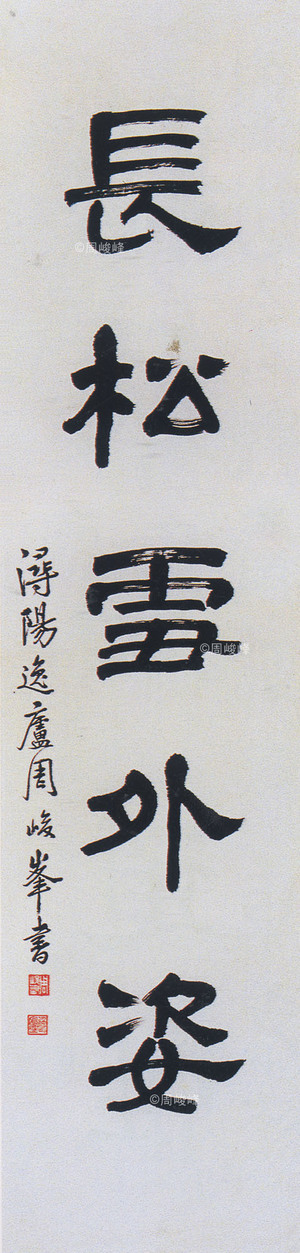 長松雪外姿
潯陽逸廬周峻峯書
©周峻峰
©周峻峰
©周峻峰